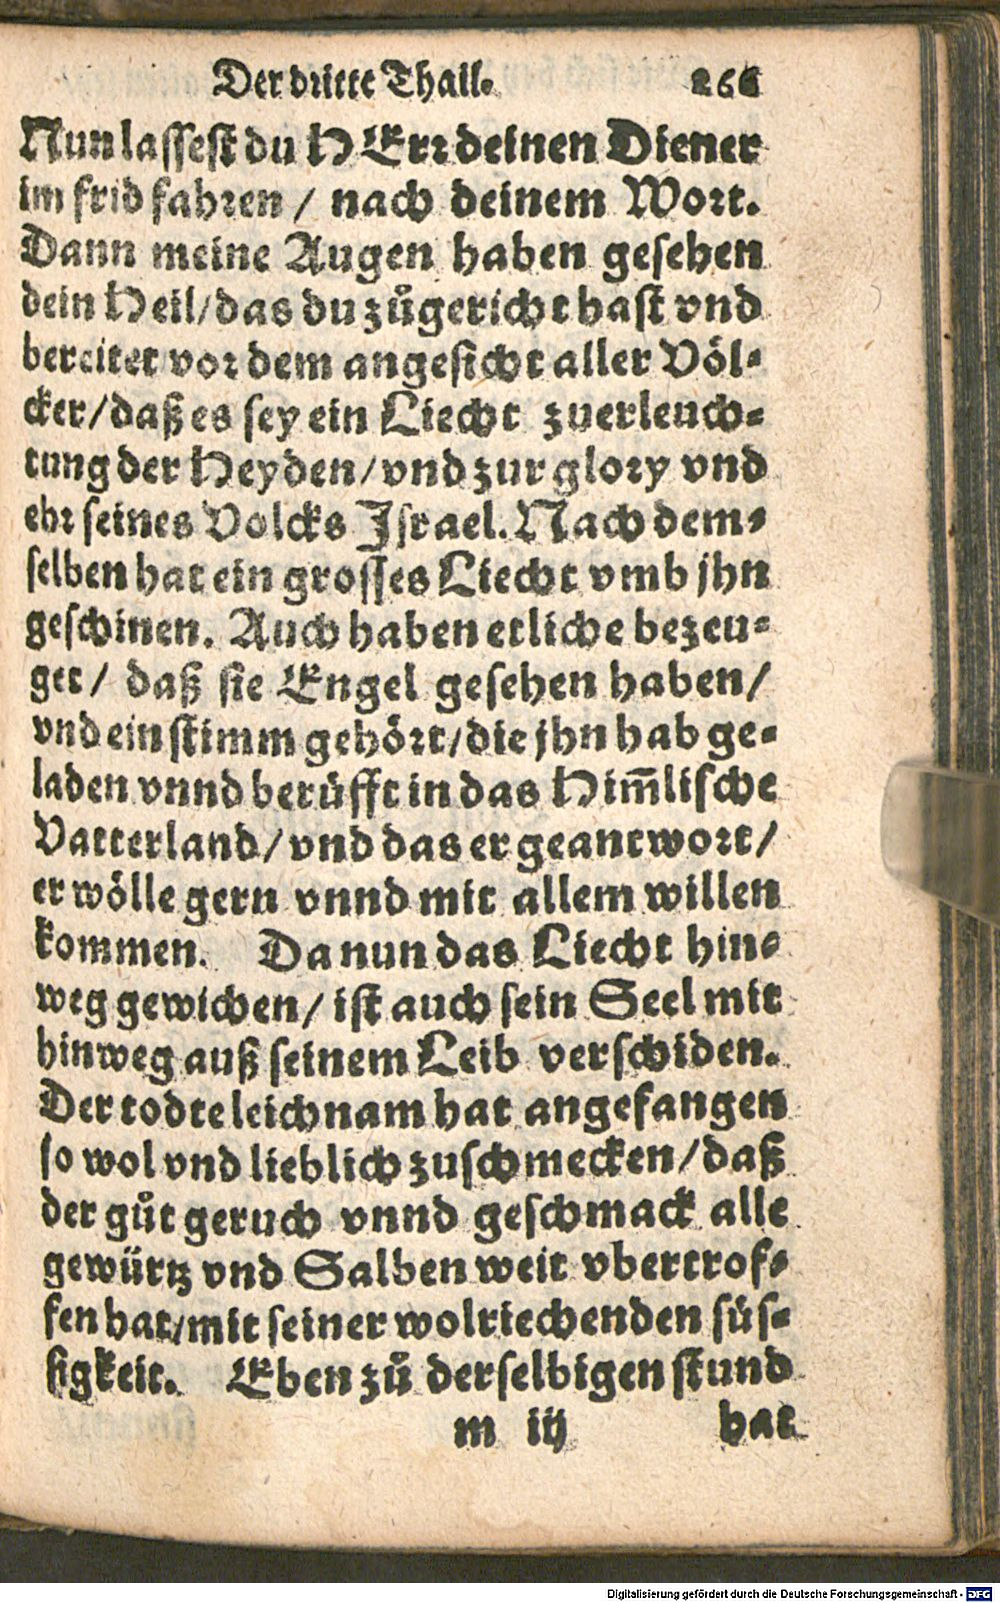 Der dritte Thail. 266
Nun lassest du HErr deinen Diener
im frid fahren / nach deinem Wort.
Dann meine Augen haben gesehen
dein Heil / das du zůgericht hast vnd
bereitet vor dem angesicht aller Völ-
cker / daß es sey ein Liecht zuerleuch-
tung der Heyden / vnd zur glory vnd
ehr seines Volcks Israel. Nach dem-
selben hat ein grosses Liecht vmb jhn
geschinen. Auch haben etliche bezeu-
get / daß sie Engel gesehen haben /
vnd ein stimm gehört / die jhn hab ge-
laden vnnd berüfft in das Him̃lische
Vatterland / vnd das er geantwort /
er wölle gern vnnd mit allem willen
kommen. Da nun das Liecht hin-
weg gewichen / ist auch sein Seel mit
hinweg auß seinem Leib verschiden.
Der todte leichnam hat angefangen
so wol vnd lieblich zuschmecken / daß
der gůt geruch vnnd geschmack alle
gewürtz vnd Salben weit vbertrof-
fen hat / mit seiner wolriechenden süs-
sigkeit. Eben zů derselbigen stund
m iij hat
Digitalisierung gefördert durch die Deutsche Forschungsgemeinschaft - DFG